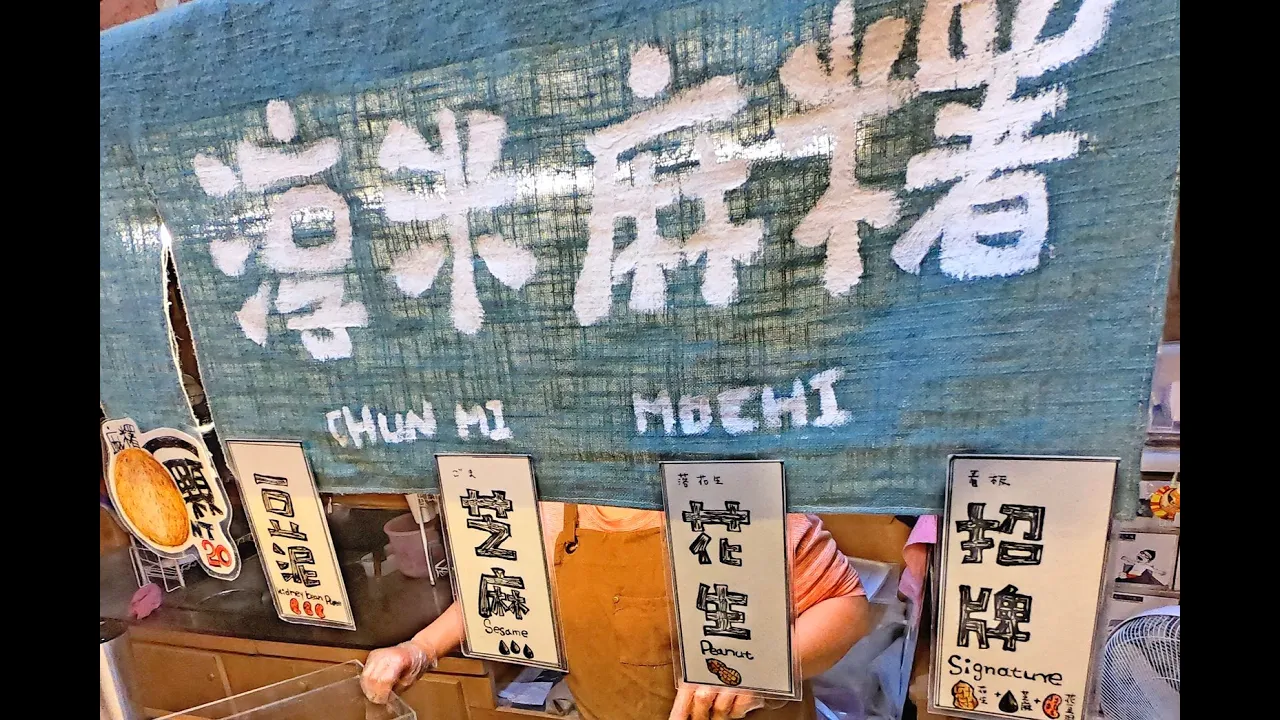 淳米麻糬
CHUN MI MOCHI
麻糬
20
豆泥
Kidney bean Paste
ごま
芝麻
Sesame
落花生
花生
Peanut
看板
招牌
Signature
花生 + 芝麻 +